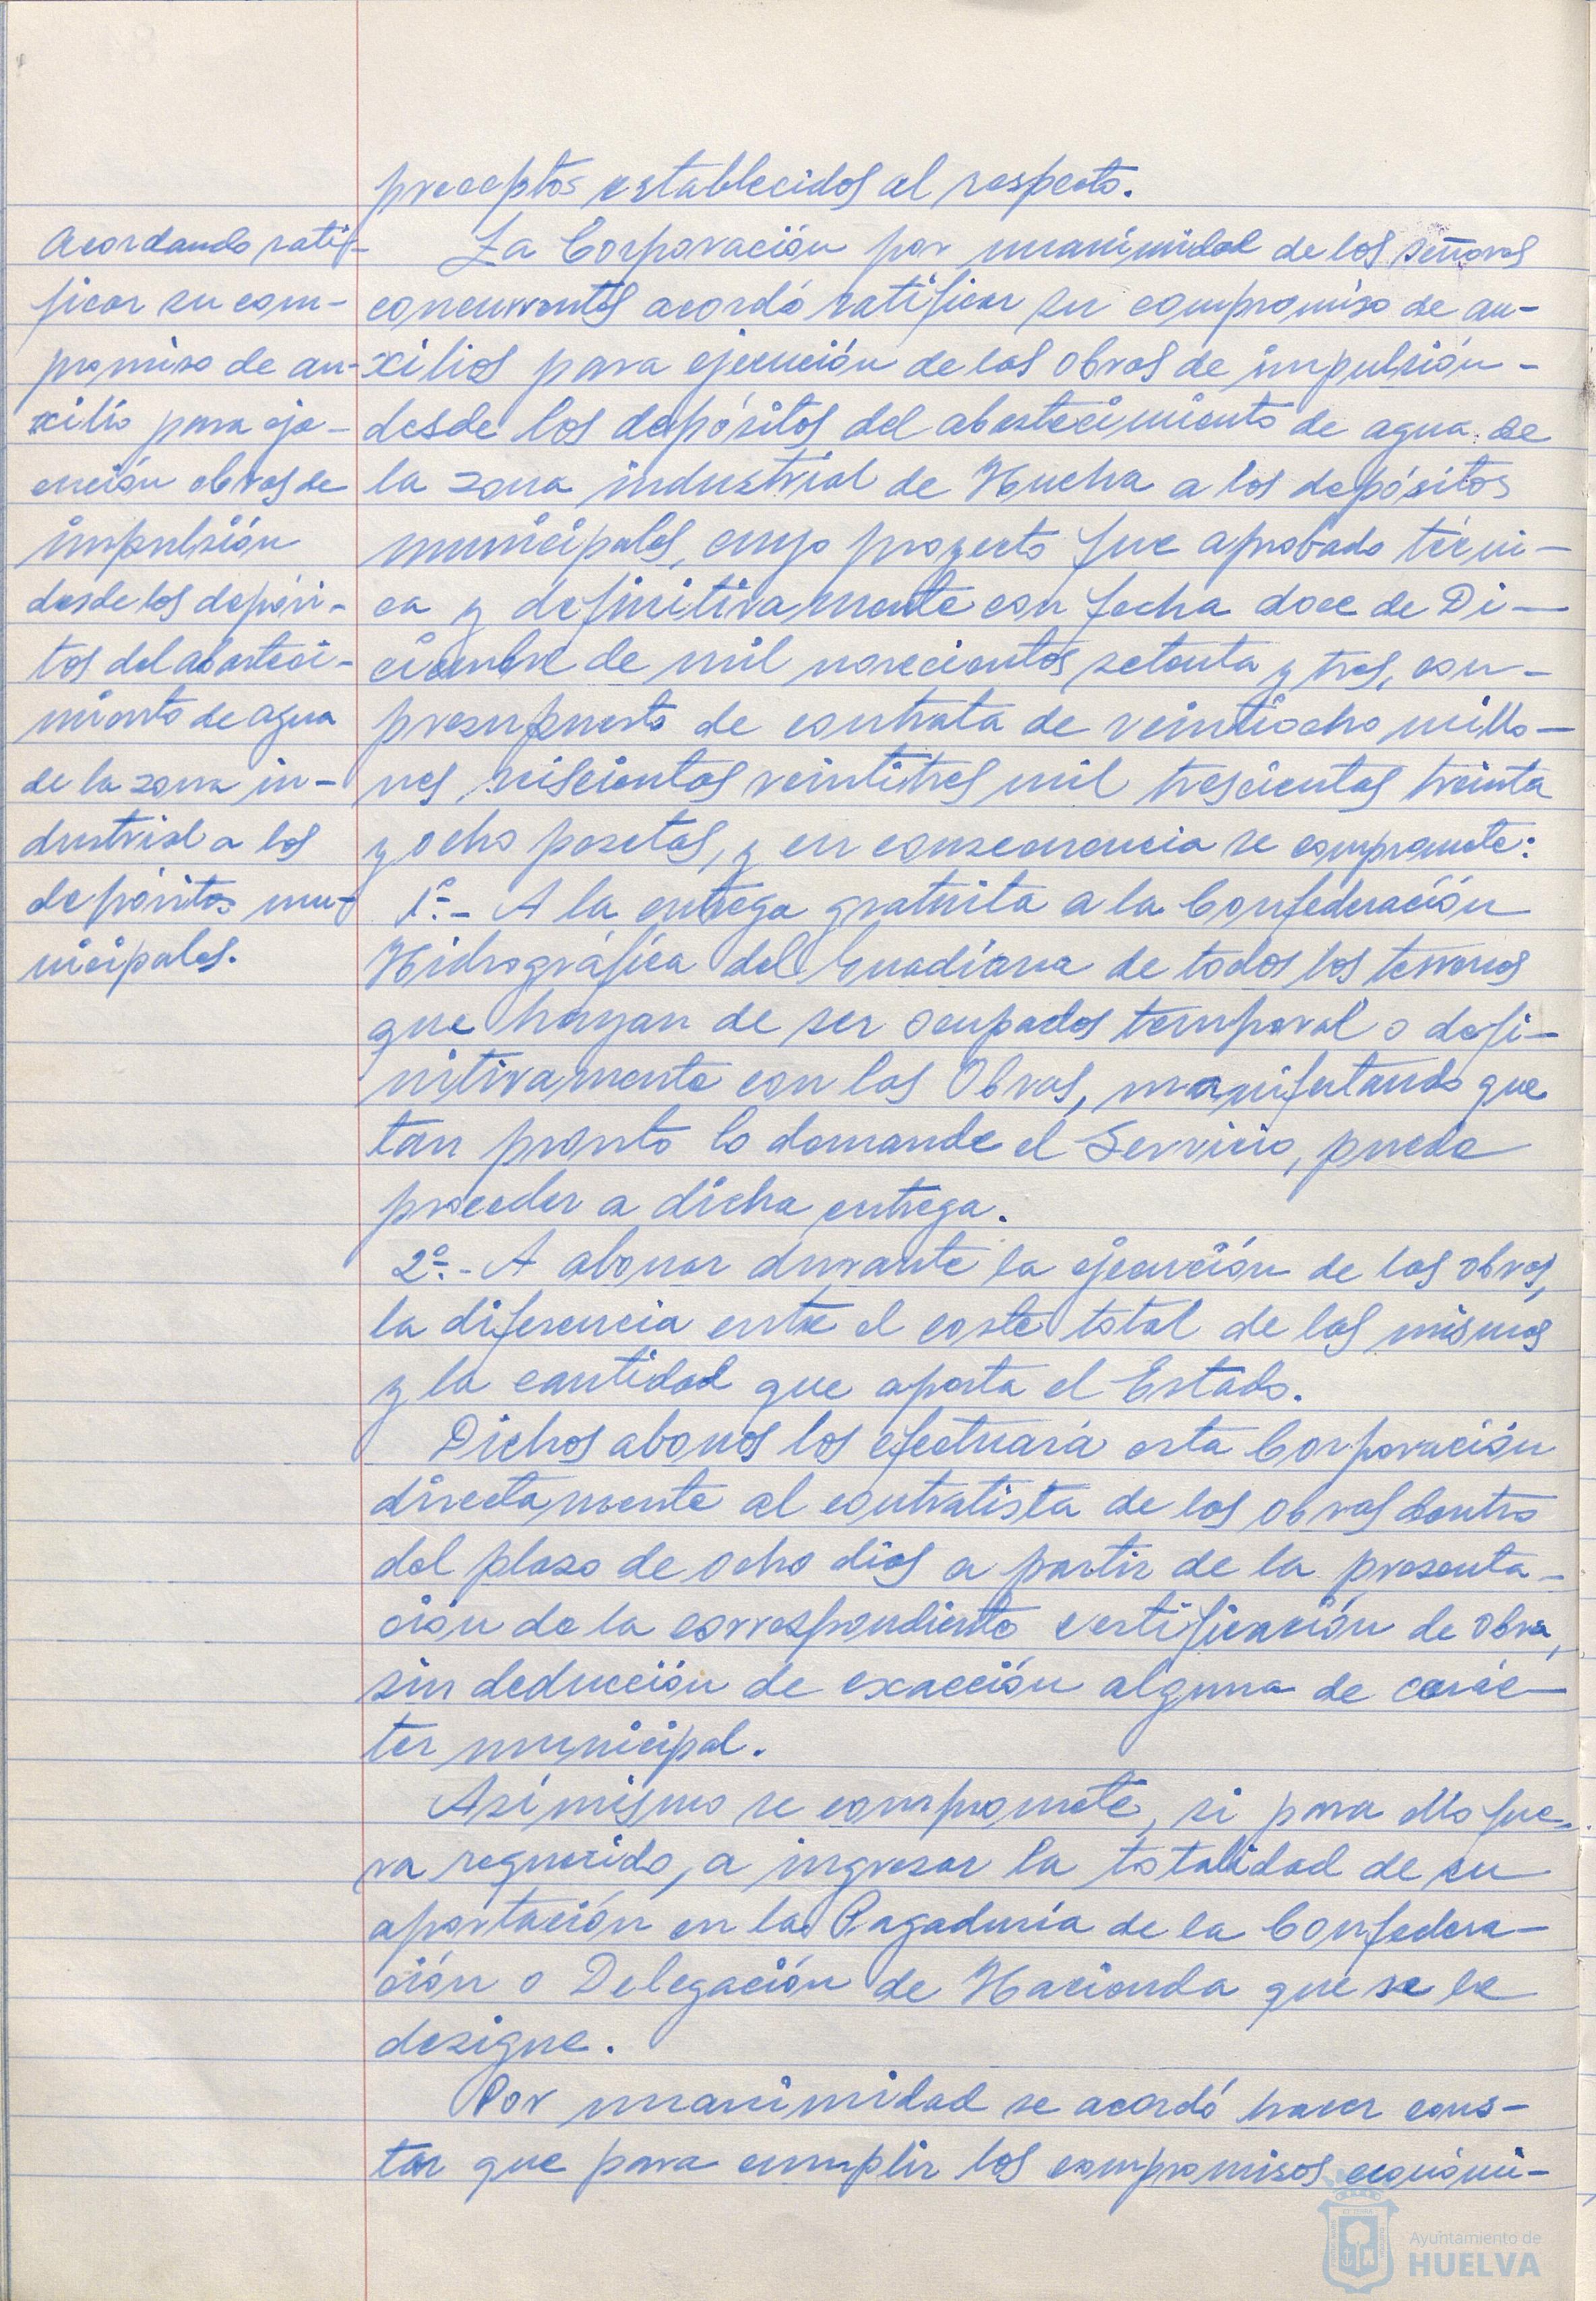 preceptos establecidos al respecto.
Acordando rati-
ficar su com-
promiso de au-
xilio para eje-
cución obras de
impulsión
desde los depósi-
tos del abasteci-
miento de agua
de la zona in-
dustrial a los
depósitos mu-
nicipales.
La Corporación por unanimidad de los señores
concurrentes acordó ratificar su compromiso de au-
xilios para ejecución de las obras de impulsión-
desde los depósitos del abastecimiento de agua de
la zona industrial de Huelva a los depósitos
municipales, cuyo proyecto fue aprobado técni-
ca y definitivamente con fecha doce de Di-
ciembre de mil novecientos setenta y tres, con-
presupuesto de contrata de veintiocho millo-
nes, seiscientas veintitres mil trescientas treinta
y ocho pesetas, y en consecuencia se compromete:
1º.- A la entrega gratuita a la Confederación
Hidrográfica del Guadiana de todos los terrenos
que hayan de ser ocupados temporal o defi-
nitivamente con las Obras, manifestando que
tan pronto lo demande el Servicio, puede
proceder a dicha entrega.
2º.- A abonar durante la ejecución de las obras,
la diferencia entre el coste total de las mismas
y la cantidad que aporta el Estado.
Dichos abonos los efectuará esta Corporación
directamente al contratista de las obras dentro
del plazo de ocho días a partir de la presenta-
ción de la correspondiente certificación de obra,
sin deducción de exacción alguna de carác-
ter municipal.
Asímismo se compromete, si para ello fue-
ra requerido, a ingresar la totalidad de su
aportación en la Pagaduría de la Confedera-
ción o Delegación de Hacienda que se le
designe.
Por unanimidad se acordó hacer cons-
tar que para cumplir los compromisos económi-
Ayuntamiento de
HUELVA